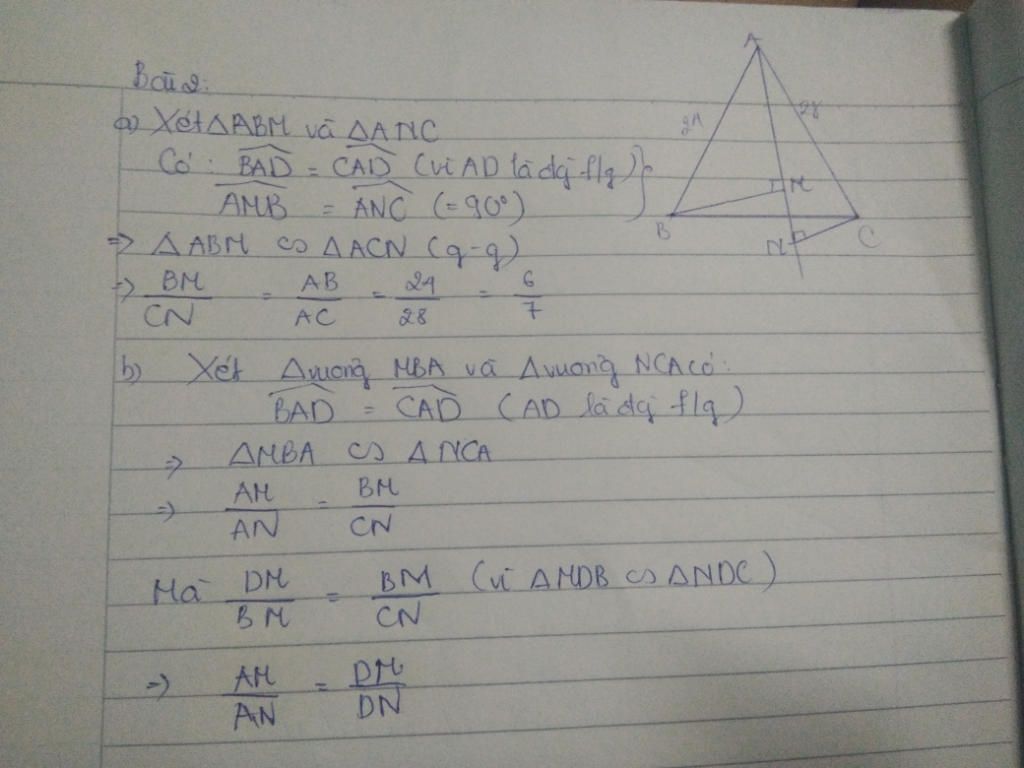 Bài 2:
a) Xét ΔABM và ΔANC
Có: BAD = CAD (vì AD là đg f/g) }
AMB = ANC (=90°)
=> ΔABM ∽ ΔACN (g-g)
=> BM/CN = AB/AC = 24/28 = 6/7
b) Xét Δvuông MBA và Δvuông NCA có:
BAD = CAD (AD là đg f/g)
=> ΔMBA ∽ ΔNCA
=> AM/AN = BM/CN
Mà DM/BM = BM/CN (vì ΔMDB ∽ ΔNDC)
=> AM/AN = DM/DN
A
24
28
M
B
N
C